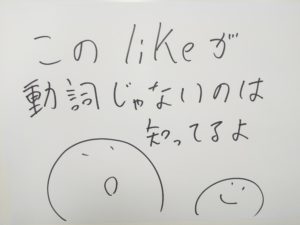 この likeが
動詞じゃないのは
知ってるよ